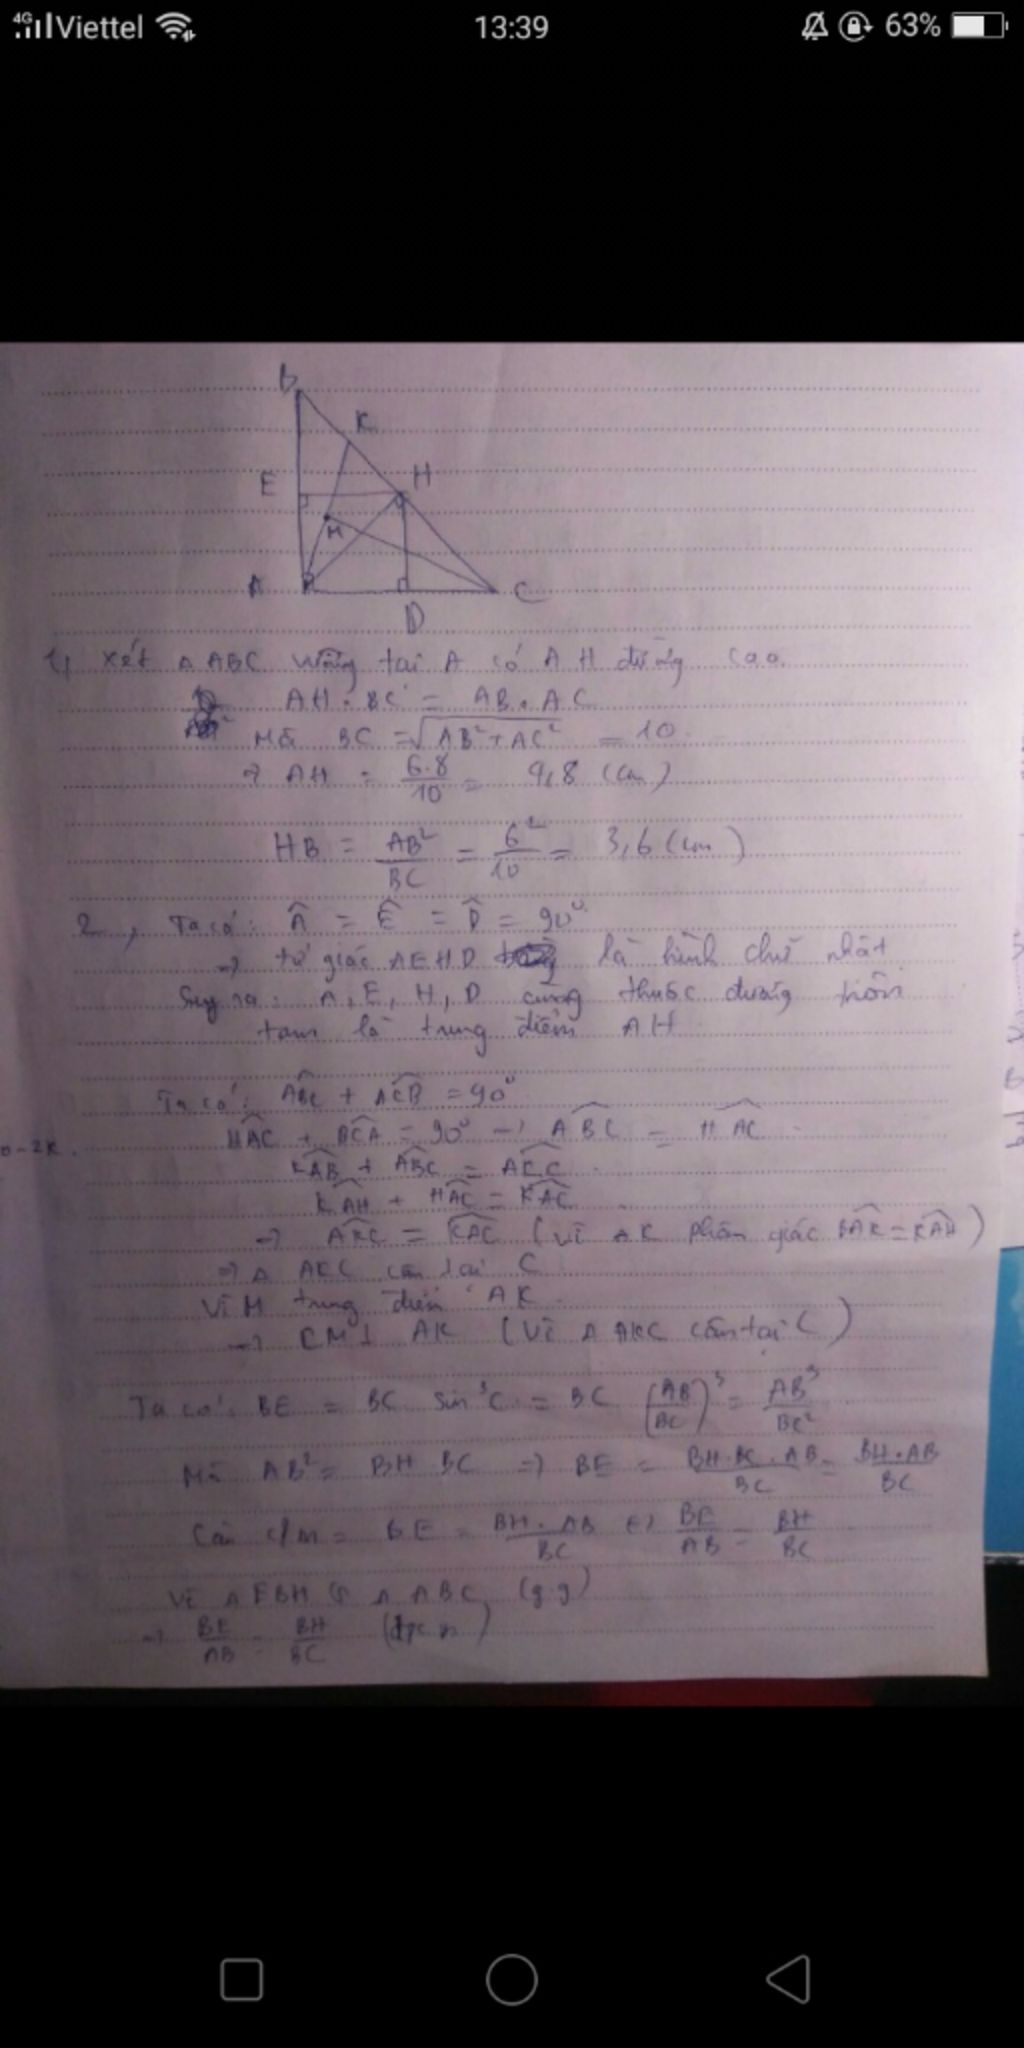 4G Viettel 13:39 63%
B
K
E H
M
A C
D
1, Xét Δ ABC vuông tại A có AH đường cao
AH . BC = AB . AC
Mà BC = √AB² + AC² = 10
=> AH = 6.8/10 = 4,8 (cm)
HB = AB²/BC = 6²/10 = 3,6 (cm)
2, Ta có: Â = Ê = D̂ = 90°
=> tứ giác AEHD là hình chữ nhật
Suy ra: A, E, H, D cùng thuộc đường tròn
tâm là trung điểm AH
Ta có: ABC + ACB = 90°
HAC + BCA = 90° -> ABC = HAC
0 - 2K.
KAB + ABC = AKC
KAH + HAC = KAC
=> AKC = KAC (vì AK phân giác BAK = KAH)
=> Δ AKC cân tại C
Vì M trung điểm AK
-> CM ⊥ AK (Vì Δ AKC cân tại C)
Ta có: BE = BC sin³C = BC (AB/BC)³ = AB³/BC²
Mà AB² = BH BC => BE = BH.BC.AB/BC = BH.AB/BC
Cần c/m = BE = BH.AB/BC <=> BE/AB = BH/BC
Vì Δ EBH ∽ Δ ABC (g.g)
=> BE/AB = BH/BC (đpcm)